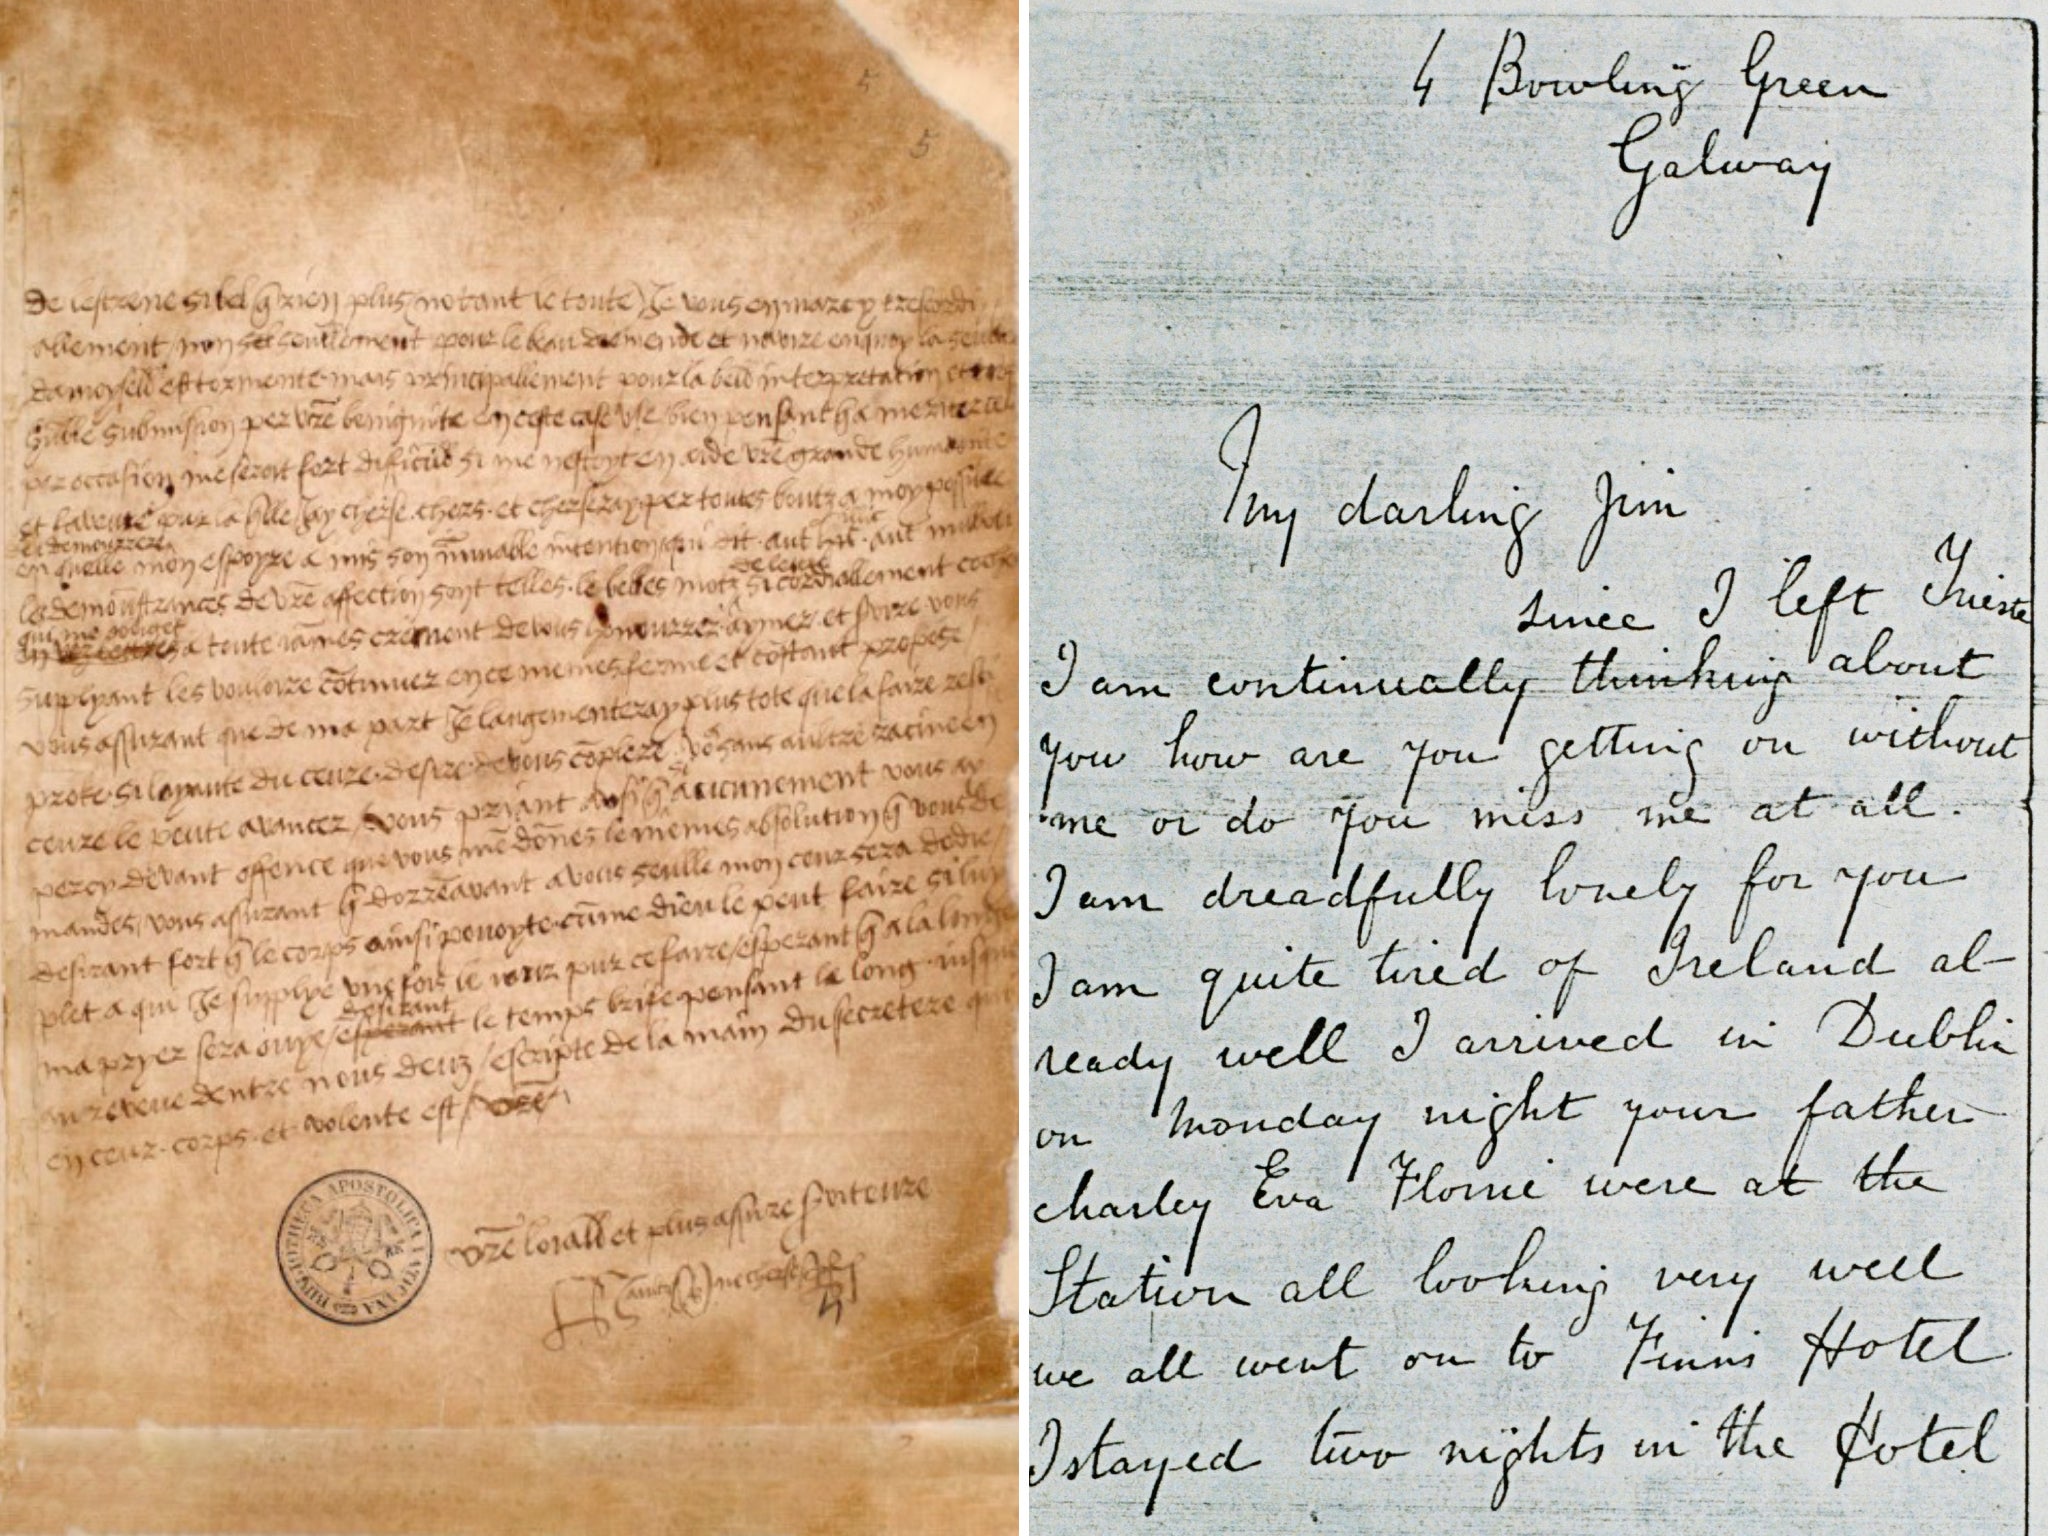 5
5
De lestrene si bel q̃ rien plus (notant le toute) Je vous en marcy trescordi
allement / non seullement pour le beau diemende et navire en quoy la seulle
damoyselle est tormente mais principallement pour la belle interpretation et trop
humble submission per vr̃e benignite en ceste case use bien pensant q̃ a meriter cela
per occasion me seroit fort dificille si me nestoyt en aide vr̃e grande humanite
et pour la q̃lle Jay cherse chers et chersseray per toutes bontz a moy possible
de demourrere
en quelle mon espoyre a mis son immuable intention qui dit aut illic aut nullibi
de lettre
les demonstrances de vr̃e affection sont telles le belles motz si cordiallement couche
qui me obliget
a toute jamès vrément de vous honourrer aymer et servre vous
supplyant les vouloire cõtinuer en ce mèmes ferme et cõstant propose /
vous assurant que de ma part Je laugementeray plus tote que la faire reci
proke si loyaute du ceure desire de vous cõplere sans aultre racine en
ceure le peute avancer / vous priant ausi q̃ si aucunement vous ay
per cy devant offence que vous me dõnes le mèmes absolution q̃ vous de
mandes / vous assurant q̃ dorrenavant a vous seulle mon ceur sera dedie /
desirant fort q̃ le corps ainsi pouoyte cũme dieu le peut faire si luy
plet a qui Je supplye une fois le jour pur ce faire / esperant q̃ a la longe
desirant
ma pryer sera ouye / esperant le temps brife pensant le long jusque
au reveue dentre nous deuz / escripte de la main du secretere qui
en ceur corps et volente est / vr̃e
vr̃e loiall et plus assure serviteure
BIBLIOTHECA APOSTOLICA VATICANA
4 Bowling Green
Galway
My darling Jim
since I left Trieste
I am continually thinking about
you how are you getting on without
me or do you miss me at all.
I am dreadfully lonely for you
I am quite tired of Ireland al-
ready well I arrived in Dublin
on Monday night your father
charley Eva Florrie were at the
Station all looking very well
we all went on to Finns Hotel
I stayed two nights in the Hotel